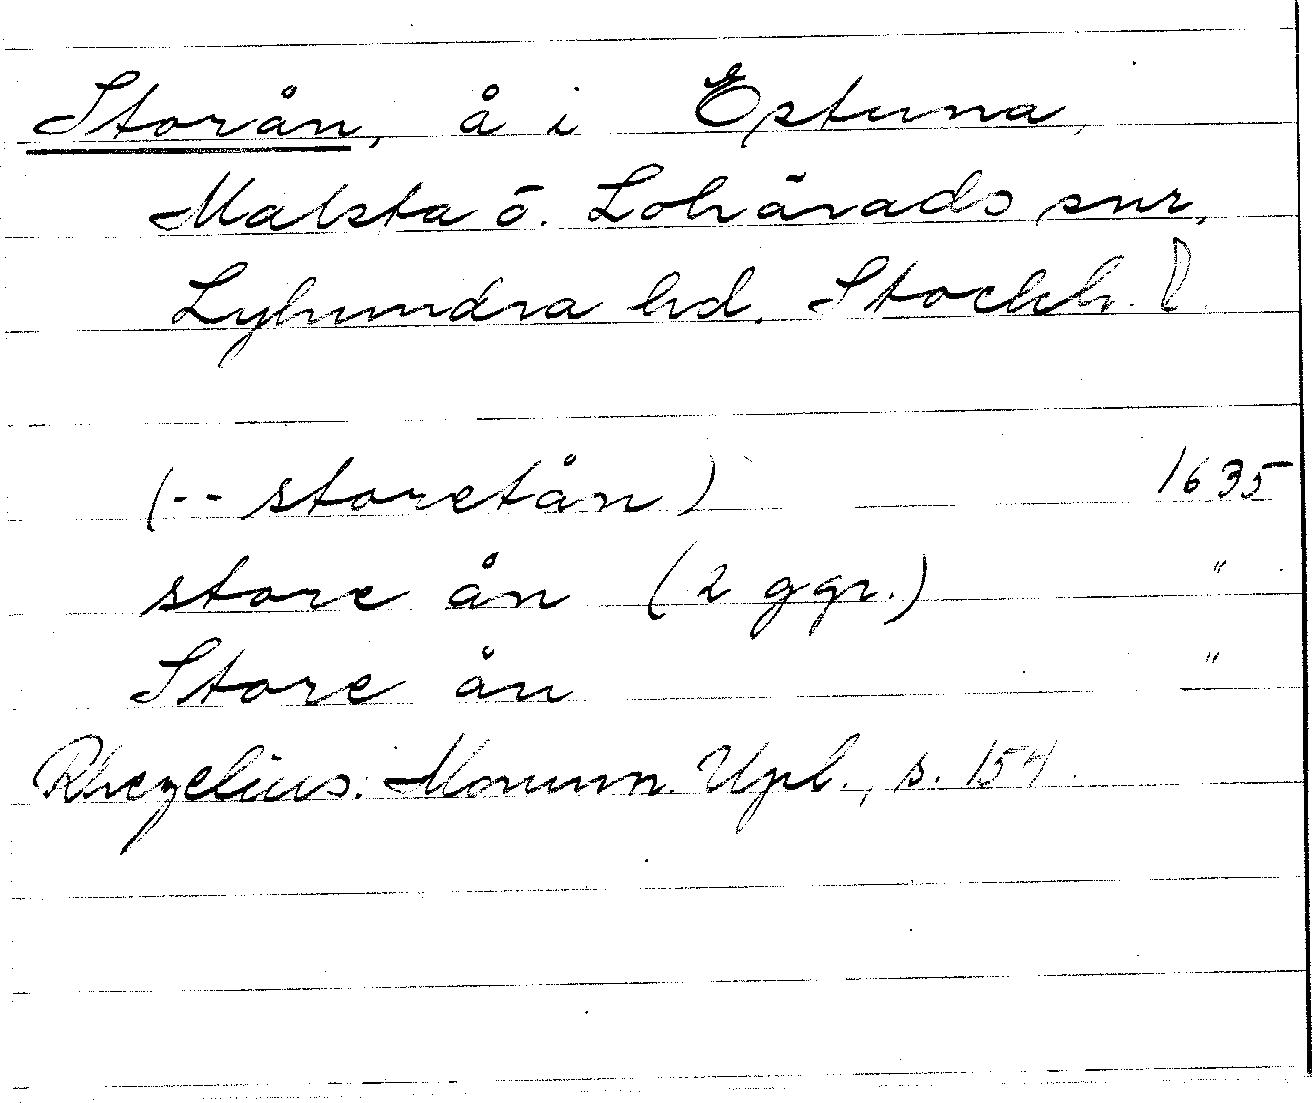 Storån, å i Estuna,
Malsta o. Lohärads snr,
Lyhundra hd. Stockh. l.
(-- storetån) 1635
store ån (2 ggr.) "
Store ån "
Rhezelius: Monum. Upl., s. 154.